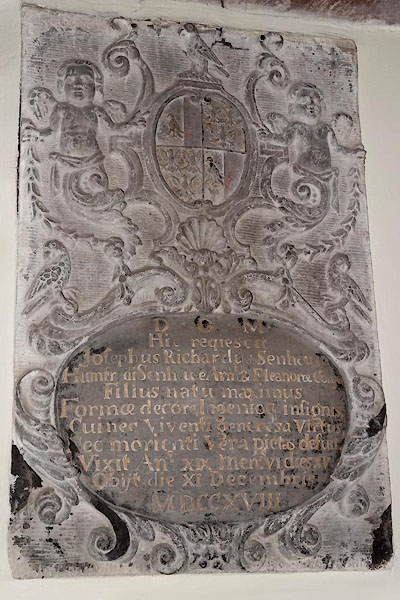 D O M
Hic requiescit
Josephus Richardus Senhou
Humfridi Senhouse Arm & Eleanoræ Conj
Filius natu maximus
Formæ decore Ingenioq insignis
Cui nec Viventi generosa Virtus
nec morienti Vera pietas defuit
Vixit Ann XIX Mens V dies
Obijt die XI Decembris
MDCCXVIII